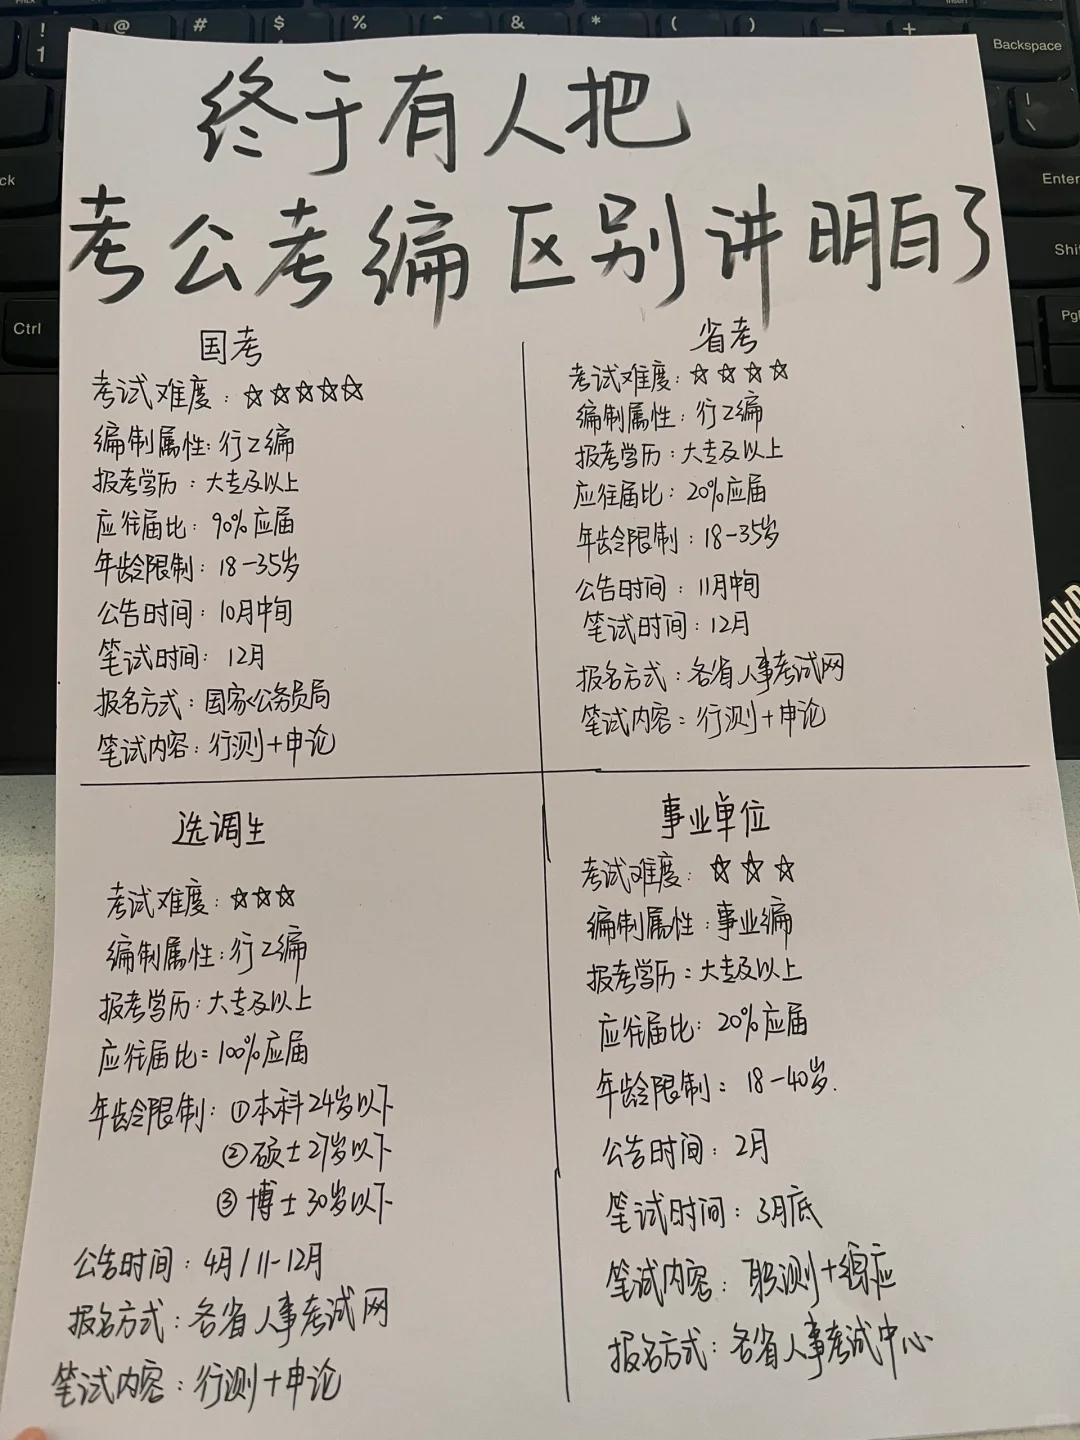 终于有人把
考公考编区别讲明白了
国考
考试难度：☆☆☆☆☆
编制属性：行政编
报考学历：大专及以上
应往届比：90%应届
年龄限制：18-35岁
公告时间：10月中旬
笔试时间：12月
报名方式：国家公务员局
笔试内容：行测+申论
省考
考试难度：☆☆☆☆
编制属性：行政编
报考学历：大专及以上
应往届比：20%应届
年龄限制：18-35岁
公告时间：11月中旬
笔试时间：12月
报名方式：各省人事考试网
笔试内容：行测+申论
选调生
考试难度：☆☆☆
编制属性：行政编
报考学历：大专及以上
应往届比：100%应届
年龄限制：①本科24岁以下
②硕士27岁以下
③博士30岁以下
公告时间：4月/11-12月
报名方式：各省人事考试网
笔试内容：行测+申论
事业单位
考试难度：☆☆☆
编制属性：事业编
报考学历：大专及以上
应往届比：20%应届
年龄限制：18-40岁.
公告时间：2月
笔试时间：3月底
笔试内容：职测+综应
报名方式：各省人事考试中心
Backspace
Enter
Ctrl